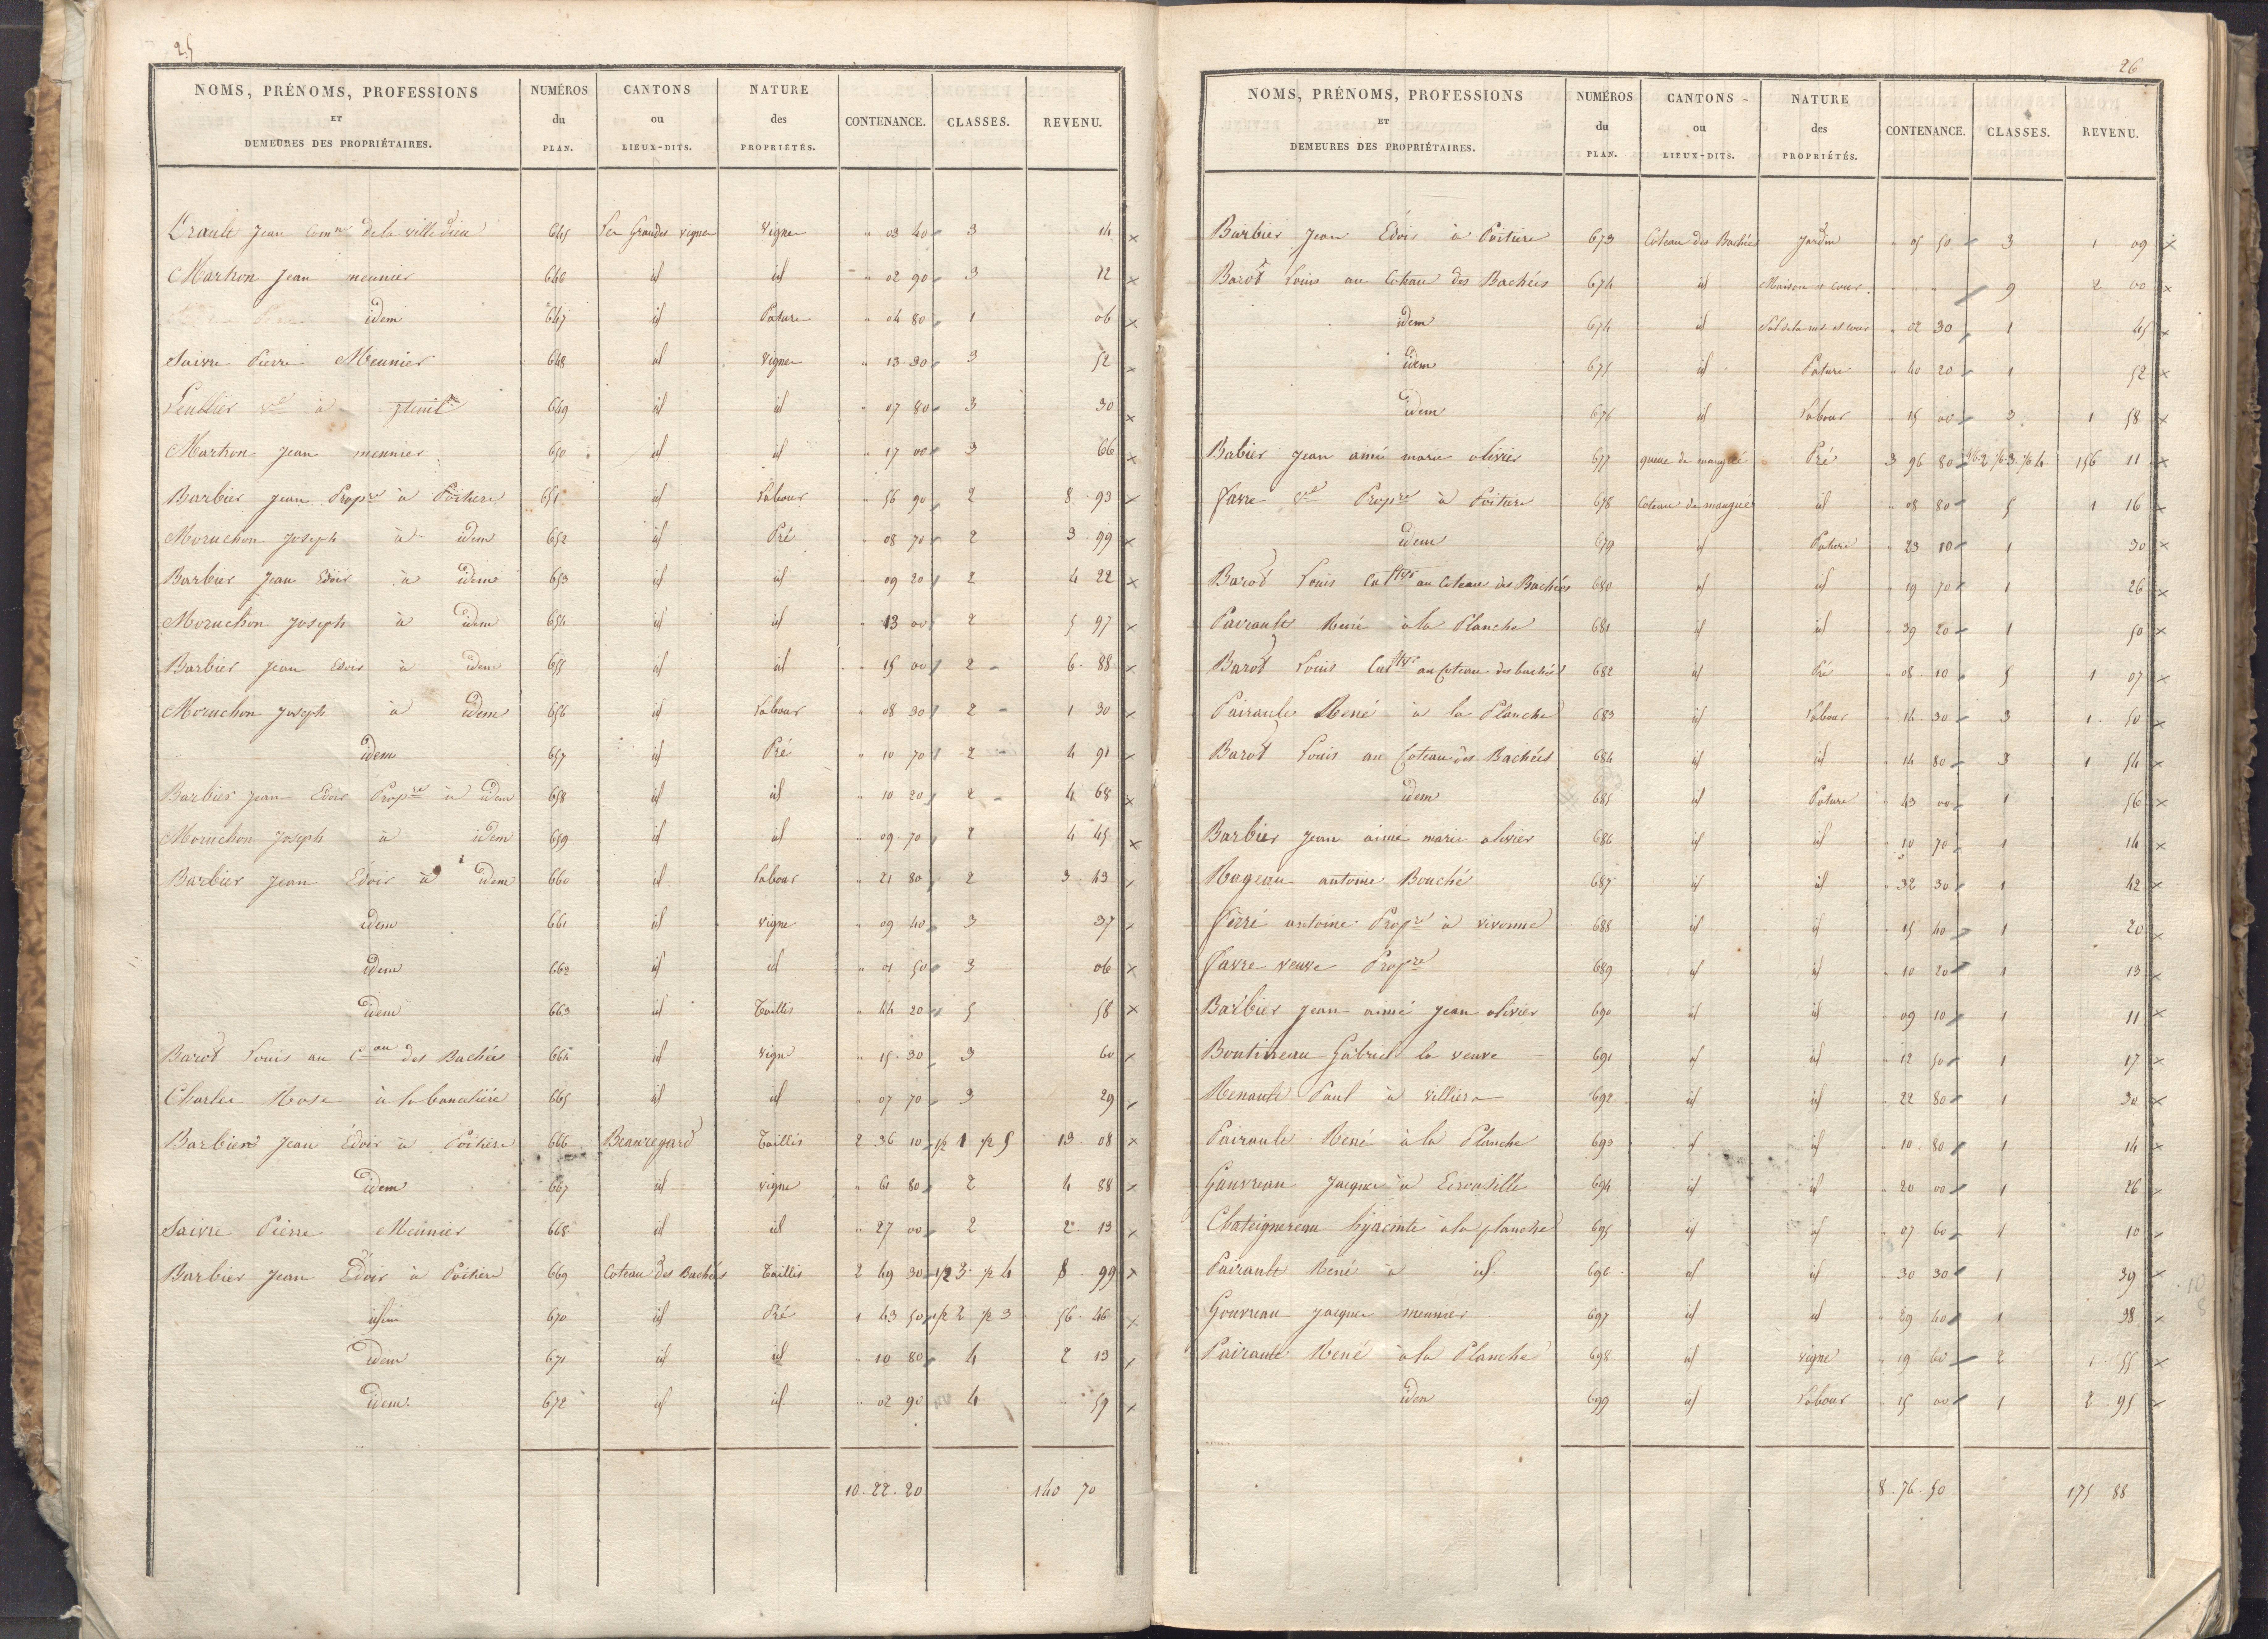 25
NOMS, PRÉNOMS, PROFESSIONS ET DEMEURES DES PROPRIÉTAIRES. | NUMÉROS du PLAN. | CANTONS ou LIEUX-DITS. | NATURE des PROPRIÉTÉS. | CONTENANCE. | CLASSES. | REVENU.
Jean comne de la villedieu 645 Les Grandes vignes Vigne " 03 40 3 14 ×
Martron Jean meunier 646 id id " 02 90 3 12 ×
idem 647 id Pature " 04 80 1 06 ×
Saivre Pierre Meunier 648 id Vigne " 13 30 3 52 ×
à 649 id id " 07 80 3 30 ×
Martron Jean meunier 650 id id " 17 00 3 66 ×
Barbier Jean Propre à Poitiers 651 id Labour " 56 90 2 8 93 ×
Moruchon Joseph à idem 652 id Pré " 08 70 2 3 99 ×
Barbier Jean Edoir à idem 653 id id " 09 20 2 4 22 ×
Moruchon Joseph à idem 654 id id " 13 00 2 5 97 ×
Barbier Jean Edoir à idem 655 id id " 15 00 2 6 88 ×
Moruchon Joseph à idem 656 id Labour " 08 30 2 1 30 ×
idem 657 id Pré " 10 70 2 4 91 ×
Barbier Jean Edoir Propre à idem 658 id id " 10 20 2 4 68 ×
Moruchon Joseph à idem 659 id id " 09 70 2 4 45 ×
Barbier Jean Edoir à idem 660 id Labour " 21 80 2 3 43 ×
idem 661 id vigne " 09 40 3 37 ×
idem 662 id id " 01 50 3 06 ×
idem 663 id Taillis " 44 20 5 58 ×
Barot Louis au Cau des Bachées 664 id vigne " 15 30 3 60 ×
Charles Rose à la 665 id id " 07 70 3 29 ×
Barbier Jean Edoir à Poitiers 666 Beauregard Taillis 2 36 10 1/2 1 1/2 5 13 08 ×
idem 667 id vigne " 61 80 2 4 88 ×
Saivre Pierre Meunier 668 id id " 27 00 2 2 13 ×
Barbier Jean Edoir à Poitiers 669 Coteau des Bachées Taillis 2 49 30 1/2 3 1/2 4 8 99 ×
idem 670 id Pré 1 43 50 1/2 2 1/2 3 56 46 ×
idem 671 id id " 10 80 4 2 13 ×
idem 672 id id " 02 90 4 59 ×
10. 22. 20 140 70
26
NOMS, PRÉNOMS, PROFESSIONS ET DEMEURES DES PROPRIÉTAIRES. | NUMÉROS du PLAN. | CANTONS ou LIEUX-DITS. | NATURE des PROPRIÉTÉS. | CONTENANCE. | CLASSES. | REVENU.
Barbier Jean Edoir à Poitiers 673 Coteau des Bachées Jardin " 05 50 3 1 09 ×
Barot Louis au Coteau des Bachées 674 id Maison et cour " " " 9 2 00 ×
idem 674 id Sol de la me et cour " 02 30 1 45 ×
idem 675 id Pature " 40 20 1 52 ×
idem 676 id Labour " 15 00 3 1 58 ×
Babier Jean aimé marie olivier 677 queue de maugué Pré 3 96 80 156 11 ×
Favre ve Propre à Poitiers 678 Coteau de maugué id " 08 80 5 1 16 ×
idem 679 id Pature " 23 10 1 30 ×
Barot Louis Cultivr au Coteau des Bachées 680 id id " 19 70 1 26 ×
Pairault René à la Planche 681 id id " 39 20 1 50 ×
Barot Louis Cultivr au Coteau des bachées 682 id Pré " 08 10 5 1 07 ×
Pairault René à la Planche 683 id Labour " 14 30 3 1 50 ×
Barot Louis au Coteau des Bachées 684 id id " 14 80 3 1 54 ×
idem 685 id Pature " 43 00 1 56 ×
Barbier Jean aimé marie olivier 686 id id " 10 70 1 14 ×
Rogeau antoine Bouché 687 id id " 32 30 1 42 ×
Ferré antoine Propre à vivonne 688 id id " 15 40 1 20 ×
Favre veuve Propre 689 id id " 10 20 1 13 ×
Barbier Jean aimé Jean olivier 690 id id " 09 10 1 11 ×
Boutineau Gabriel la veuve 691 id id " 12 50 1 17 ×
Renault Paul à villiers 692 id id " 22 80 1 30 ×
Pairault René à la Planche 693 id id " 10 80 1 14 ×
Gauvreau Jacques à 694 id id " 20 00 1 26 ×
Chateignereau hyacinte à la planche 695 id id " 07 60 1 10 ×
Pairault René à id. 696 id id " 30 30 1 39 ×
Gouvreau Jacques meunier 697 id id " 29 40 1 38 ×
Pairault René à la Planche 698 id vigne " 19 60 2 1 55 ×
idem 699 id Labour " 15 00 1 2 95 ×
8. 76. 50 175 88
10
8